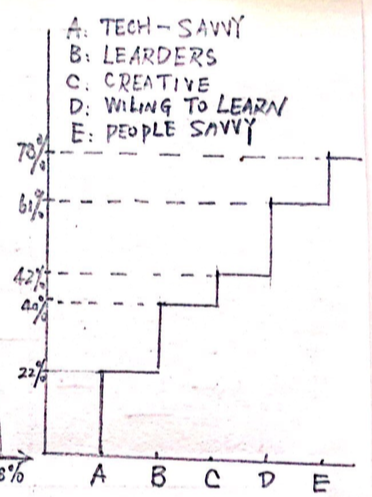 A: TECH-SAVVY
B: LEARDERS
C: CREATIVE
D: WILING TO LEARN
E: PEOPLE SAVVY
70%
61%
42%
40%
22%
8%
A B C D E